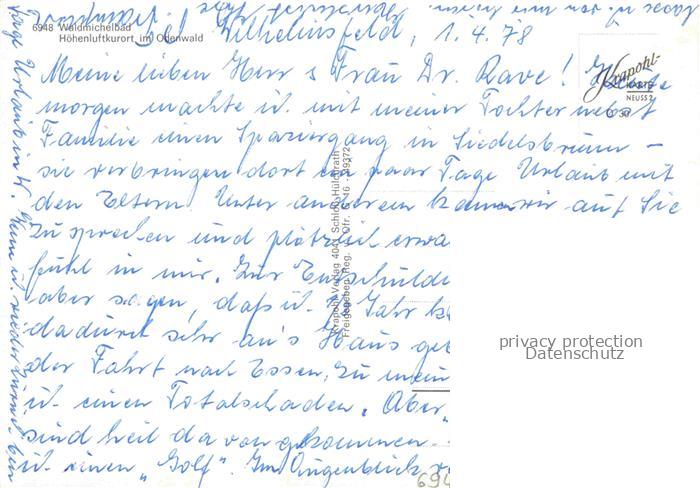 6948 Waldmichelbad
Höhenluftkurort im Odenwald
Wilhelmsfeld, 1.4.78
Krapohl-
KARTE
NEUSS
Meine lieben Herr & Frau Dr. Rave! Heute
morgen machte ich mit meiner Tochter nebst
Familie einen Spaziergang in Siedelsbrunn –
sie verbringen dort ein paar Tage Urlaub mit
den Eltern. Unter anderem kamen wir auf Sie
zu sprechen und plötzlich erwa
fühl in mir. Zur Entschuldi
aber sagen, daß ich Jahr
dadurch sehr an's Haus ge
der Fahrt nach Essen, zu mein
ich einen Totalschaden. Aber
sind heil davon gekommen.
ich einen „Golf". Im Augenblick
694
Tage Urlaub in W. Wenn ich wieder zurück bin
Krapohl-Verlag 4041 Schloß Hülchrath
Freigegeben Reg.
privacy protection
Datenschutz